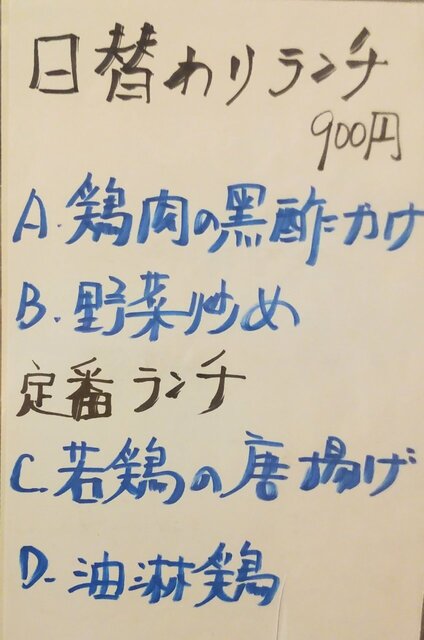 日替わりランチ
900円
A.鶏肉の黒酢がけ
B.野菜炒め
定番ランチ
C.若鶏の唐揚げ
D.油淋鶏